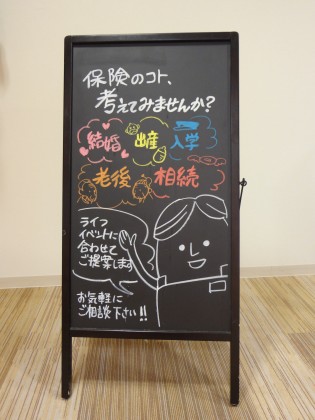 保険のコト、
考えてみませんか?
結婚 出産 入学
老後 相続
ライフ
イベントに
合わせて
ご提案します
お気軽に
ご相談下さい!!